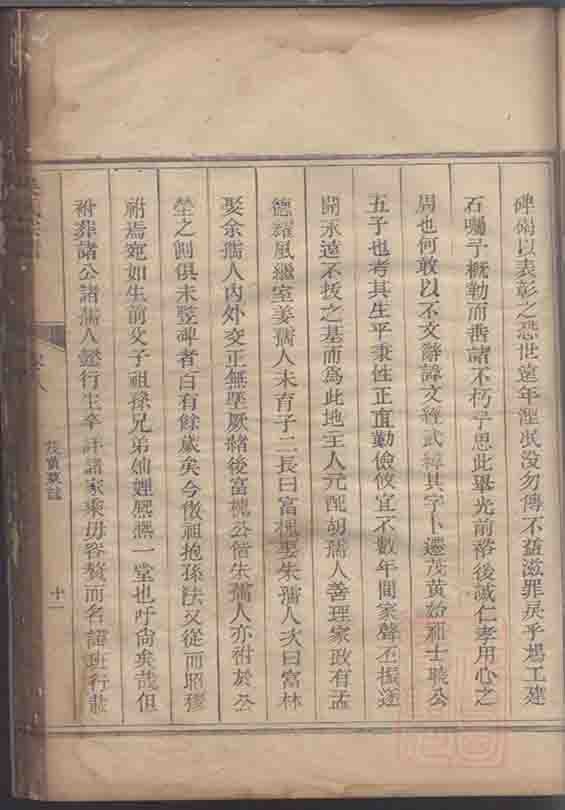 碑碣以表彰之恐世遠年湮泯没勿傳不益滋罪戾乎場工建
石囑予概勒而壽諸不朽予思此舉光前裕後誠仁孝用心之
周也何敢以不文辭諱文經武緯其字卜遷茂黄始祖士驍公
五子也考其生平秉性正直勤儉攸宜不數年間家聲丕振遂
開承遠不拔之基而為此地主人元配胡孺人善理家政有孟
德耀風繼室姜孺人未育子二長曰富槐娶朱孺人次曰富林
娶余孺人内外交正無墜厥緒後富槐公偕朱孺人亦祔於公
塋之側俱未豎碑者百有餘歲矣今倣祖抱孫法父從而昭穆
祔焉宛如生前父子祖孫兄弟妯娌熙熙一堂也吁尚矣哉但
祔葬諸公諸孺人懿行生卒詳諸家乘毋容贅而名諱班行載
卷八
茂黄墓誌
十一